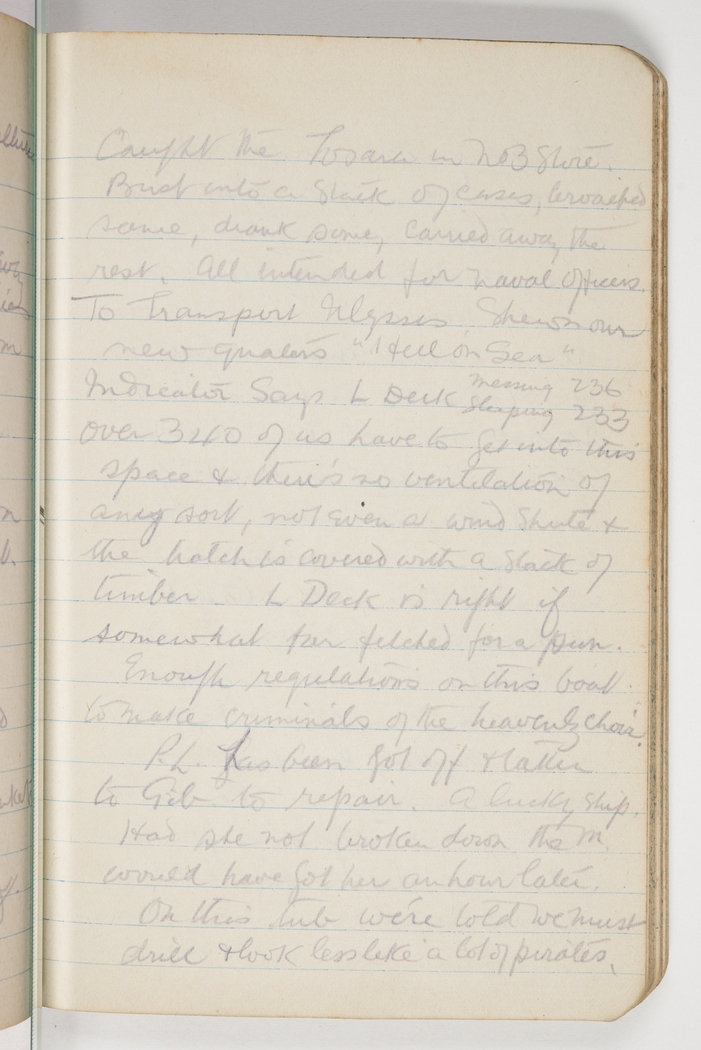 Caught the in No3 Store.
Bust into a stack of cases, broached
some, drank some, carried away the
rest. All intended for Naval Officers.
To Transport Ulysses. Shewn our
new quarters "Hell on Sea"
Indicator Says L Deck Messing 236
Sleeping 233
over 340 of us have to get into this
space & there's no ventilation of
any sort, not even a wind shute &
the hatch is covered with a stack of
timber. L Deck is right if
somewhat far fetched for a pun.
Enough regulations on this boat
to make criminals of the heavenly choir.
P.L. has been got off & taken
to Gib to repair. A lucky ship.
Had she not broken down the M.
would have got her an hour later.
On this tub we're told we must
drill & look less like a lot of pirates.